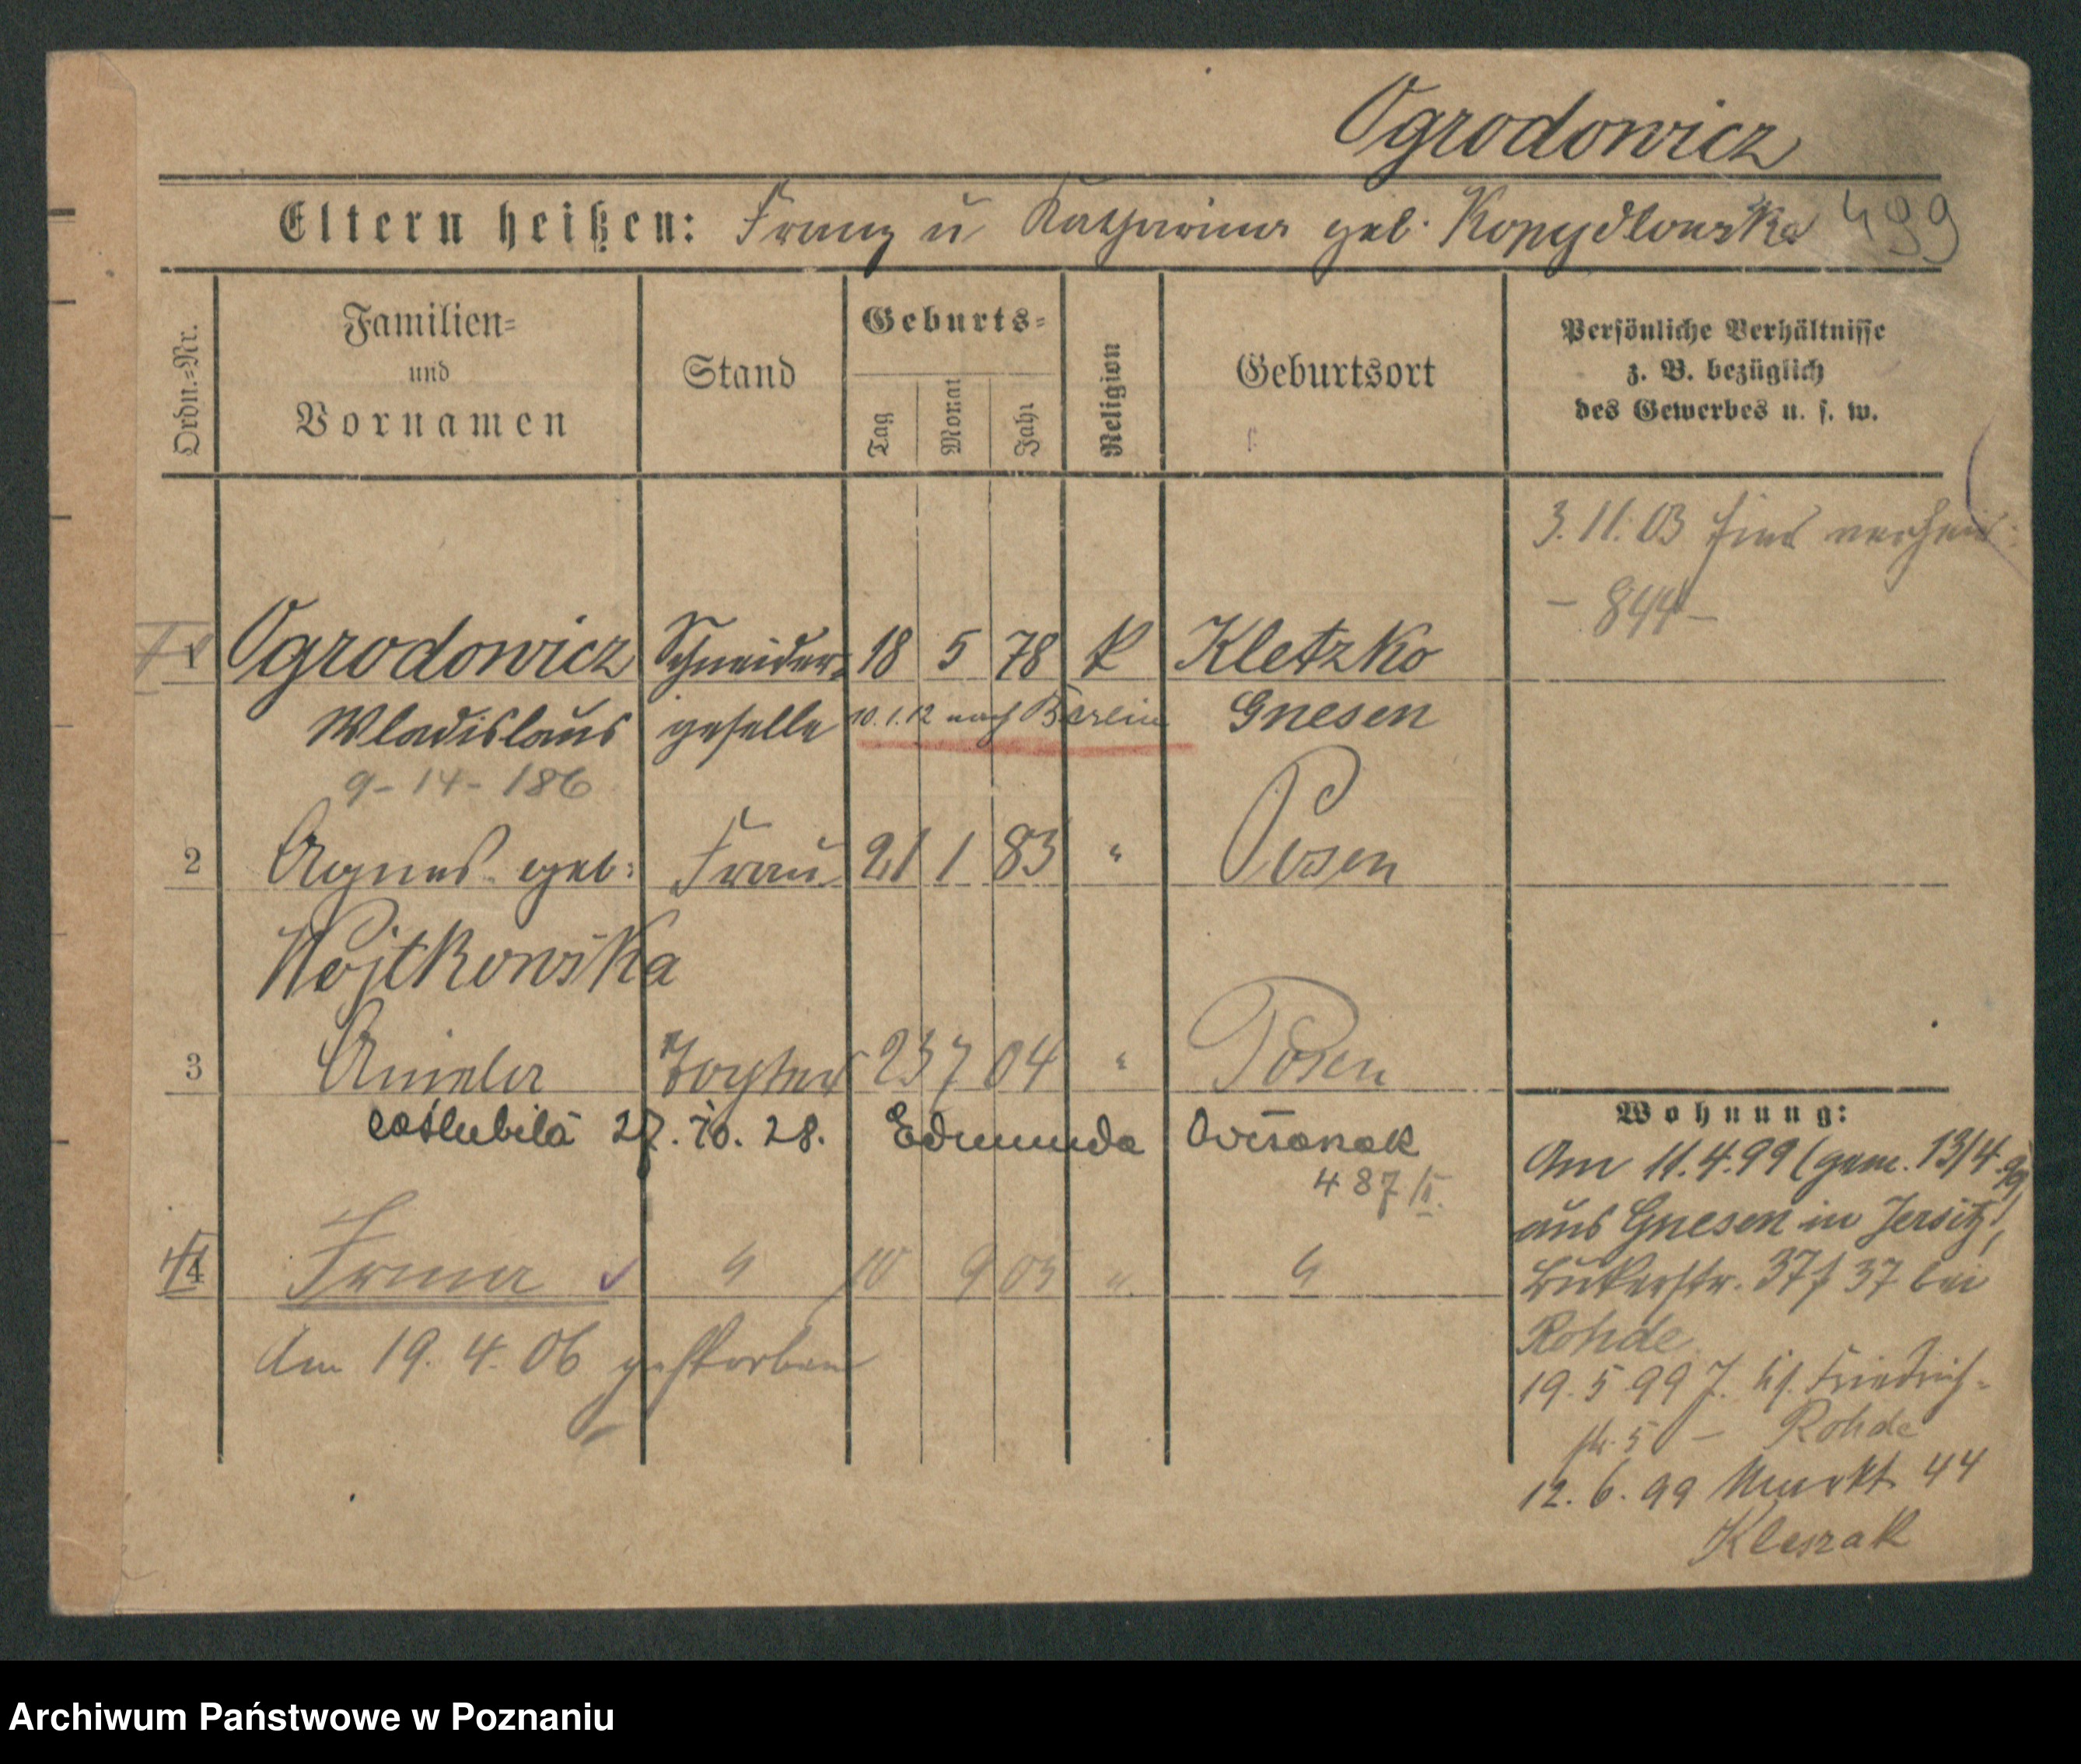 Ogrodowicz
Eltern heißen: Franz u Katharina geb. Kopydlowska 499
Ordn.-Nr.
Familien-
und
Vornamen
Stand
Geburts-
Tag
Monat
Jahr
Religion
Geburtsort
Persönliche Verhältnisse
z. B. bezüglich
des Gewerbes u. s. w.
3.11.03 sind verheir.
- 844 -
1 Ogrodowicz Schneider- 18 5 78 k Kletzko
Wladislaus geselle 10.1.12 nach Berlin Gnesen
9-14-186
2 Agnes geb: Frau 21 1 83 " Posen
Wojtkowska
3 Aniela Tochter 23 7 04 " Posen
zaślubiła 27.10.28. Edmunda
487/II.
4 Irma " 10 9 05 " "
Am 19.4.06 gestorben
Wohnung:
Am 11.4.99 (gem. 13/4.99)
aus Gnesen in Jersitz,
37 bei
Rohde
19.5 99 J. Friedrich-
str. 5 - Rohde
12.6.99 Markt 44
Kleszak
Archiwum Państwowe w Poznaniu